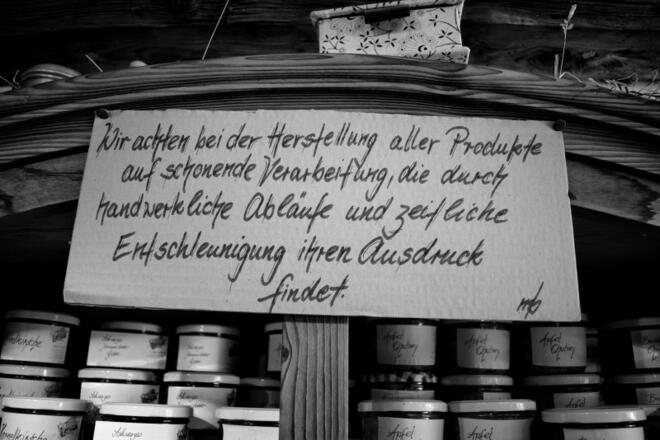 Wir achten bei der Herstellung aller Produkte
auf schonende Verarbeitung, die durch
handwerkliche Abläufe und zeitliche
Entschleunigung ihren Ausdruck
findet.
mb
Apfel
Chutney
Apfel
Chutney
Apfel
Chutney
Apfel
Apfel